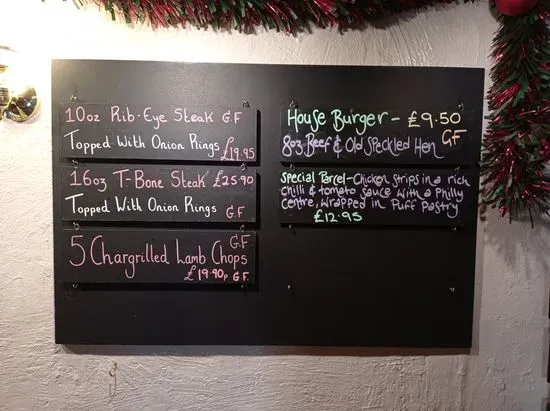 10oz Rib-Eye Steak G.F
Topped With Onion Rings £19.95
16oz T-Bone Steak £25.90
Topped With Onion Rings G.F
G.F
5 Chargrilled Lamb Chops
£19.90p G.F.
House Burger - £9.50
8oz Beef & Old Speckled Hen GF
Special Parcel - Chicken Strips in a rich
chilli & tomato sauce with a Philly
Centre, wrapped in Puff Pastry
£12.95